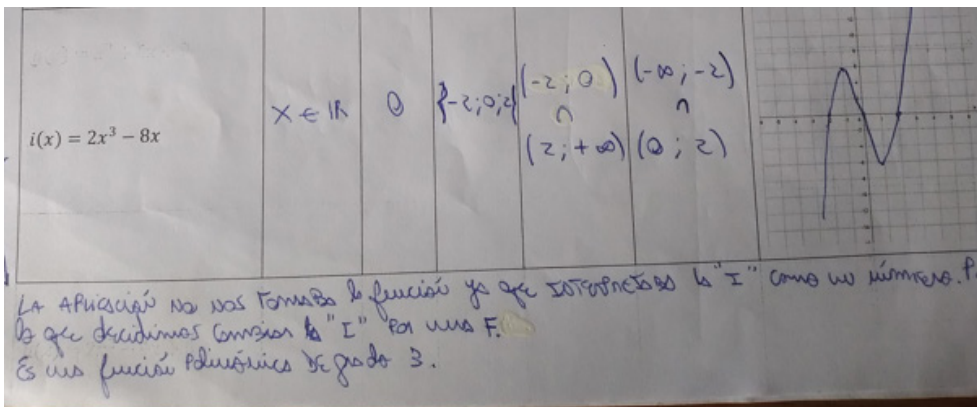 i(x) = 2x³ − 8x
X ∈ ℝ
0
{-2;0;2}
(-2;0)
∩
(2;+∞)
(-∞;-2)
∩
(0;2)
LA APLICACIÓN NO NOS TOMABA la función ya que INTERPRETABA la "I" como un número. P
lo que decidimos cambiar la "I" POR UNA F.
Es una función Polinómica De grado 3.